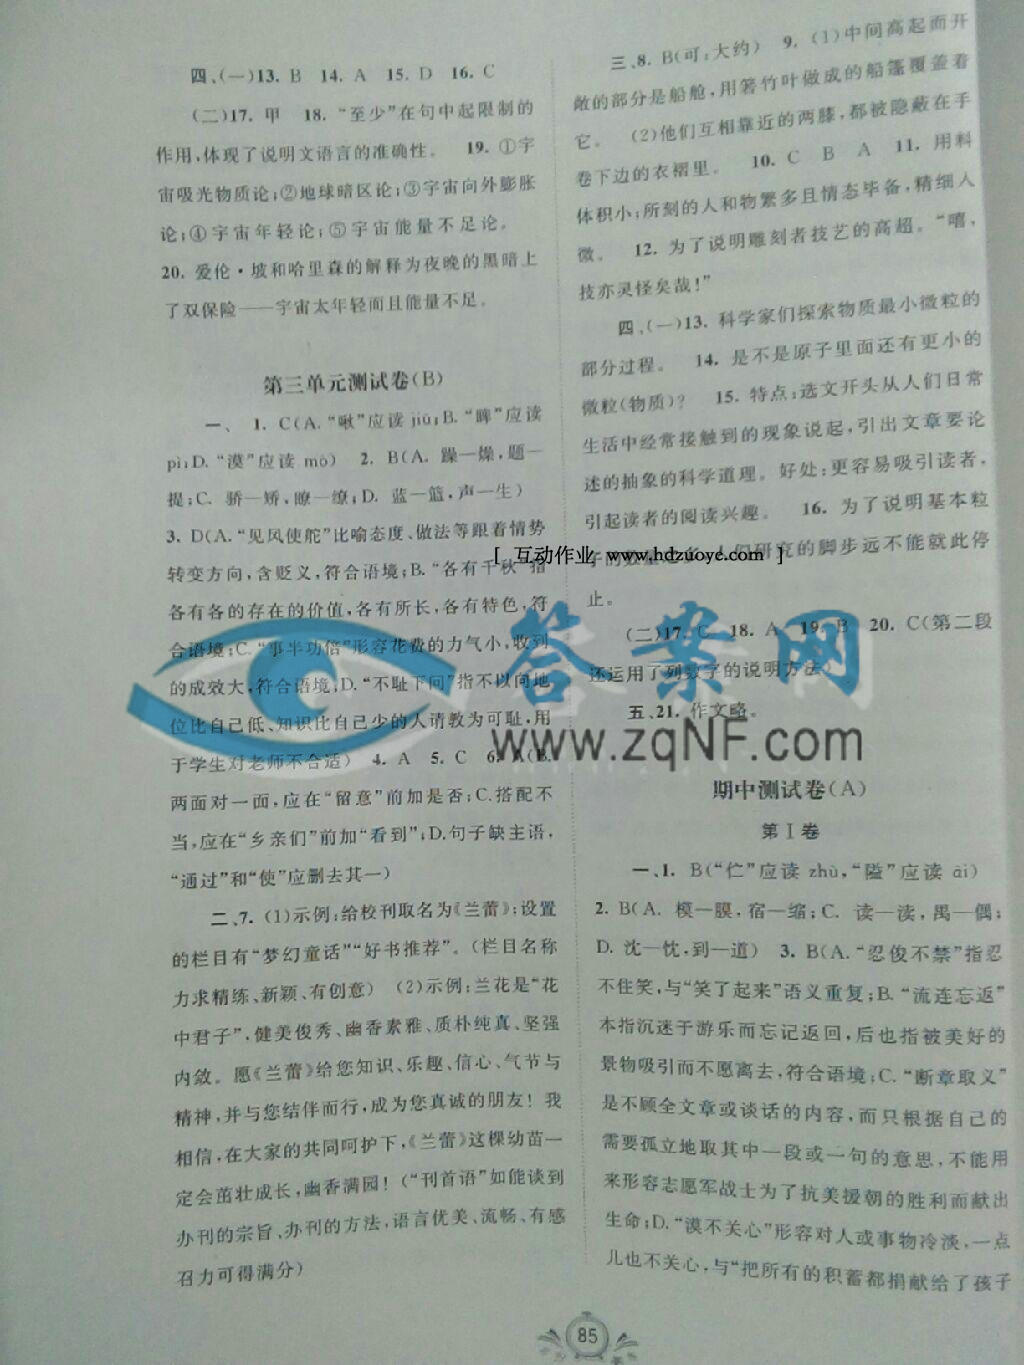 四、(一)13. B 14. A 15. D 16. C
(二)17. 甲 18. “至少”在句中起限制的
作用,体现了说明文语言的准确性。 19. ①宇
宙吸光物质论;②地球暗区论;③宇宙向外膨胀
论;④宇宙年轻论;⑤宇宙能量不足论。
20. 爱伦·坡和哈里森的解释为夜晚的黑暗上
了双保险——宇宙太年轻而且能量不足。
第三单元测试卷(B)
一、 1. C(A. “啾”应读 jiū;B. “睥”应读
pì;D. “漠”应读 mò) 2. B(A. 躁—燥,题—
提;C. 骄—矫,瞭—缭;D. 蓝—篮,声—生)
3. D(A. “见风使舵”比喻态度、做法等跟着情势
转变方向,含贬义,符合语境;B. “各有千秋”指
各有各的存在的价值,各有所长,各有特色,符
合语境;C. “事半功倍”形容花费的力气小,收到
的成效大,符合语境;D. “不耻下问”指不以向地
位比自己低、知识比自己少的人请教为可耻,用
于学生对老师不合适) 4. A 5. C 6. A(B.
两面对一面,应在“留意”前加是否;C. 搭配不
当,应在“乡亲们”前加“看到”;D. 句子缺主语,
“通过”和“使”应删去其一)
二、7. (1)示例:给校刊取名为《兰蕾》;设置
的栏目有“梦幻童话”“好书推荐”。(栏目名称
力求精练、新颖、有创意) (2)示例:兰花是“花
中君子”,健美俊秀、幽香素雅、质朴纯真、坚强
内敛。愿《兰蕾》给您知识、乐趣、信心、气节与
精神,并与您结伴而行,成为您真诚的朋友! 我
相信,在大家的共同呵护下,《兰蕾》这棵幼苗一
定会茁壮成长,幽香满园! (“刊首语”如能谈到
办刊的宗旨、办刊的方法,语言优美、流畅、有感
召力可得满分)
三、8. B(可:大约) 9. (1)中间高起而开
敞的部分是船舱,用箬竹叶做成的船篷覆盖着
它。 (2)他们互相靠近的两膝,都被隐蔽在手
卷下边的衣褶里。 10. C B A 11. 用料
体积小;所刻的人和物繁多且情态毕备,精细入
微。 12. 为了说明雕刻者技艺的高超。“嘻,
技亦灵怪矣哉!”
四、(一)13. 科学家们探索物质最小微粒的
部分过程。 14. 是不是原子里面还有更小的
微粒(物质)? 15. 特点:选文开头从人们日常
生活中经常接触到的现象说起,引出文章要论
述的抽象的科学道理。好处:更容易吸引读者,
引起读者的阅读兴趣。 16. 为了说明基本粒
子的数量 人们研究的脚步远不能就此停
[ 互动作业 www.hdzuoye.com ]
止。
(二)17. C 18. A 19. B 20. C(第二段
还运用了列数字的说明方法)
五、21. 作文略。
答案网
www.zqNF.com
期中测试卷(A)
第Ⅰ卷
一、1. B(“伫”应读 zhù,“隘”应读 ài)
2. B(A. 模—膜,宿—缩;C. 读—渎,禺—偶;
D. 沈—忱,到—道) 3. B(A. “忍俊不禁”指忍
不住笑,与“笑了起来”语义重复;B. “流连忘返”
本指沉迷于游乐而忘记返回,后也指被美好的
景物吸引而不愿离去,符合语境;C. “断章取义”
是不顾全文章或谈话的内容,而只根据自己的
需要孤立地取其中一段或一句的意思,不能用
来形容志愿军战士为了抗美援朝的胜利而献出
生命;D. “漠不关心”形容对人或事物冷淡,一点
儿也不关心,与“把所有的积蓄都捐献给了孩子
85